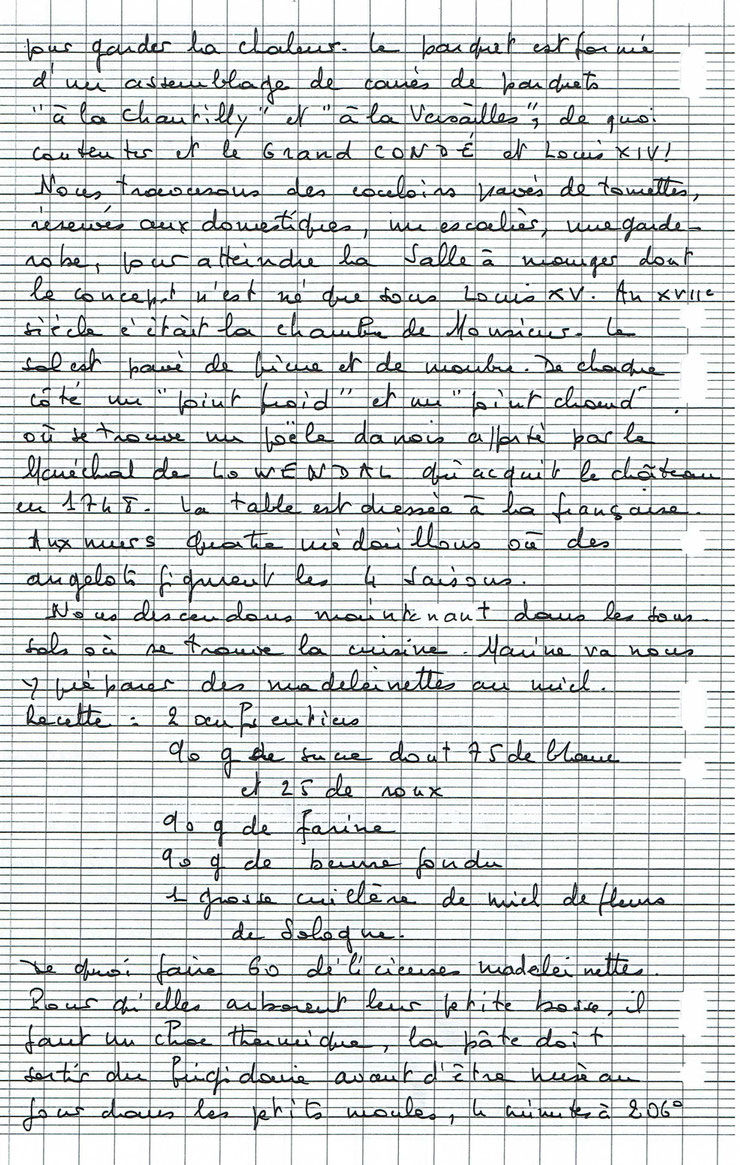 pour garder la chaleur. Le parquet est formé
d'un assemblage de carrés de parquets
"à la Chantilly" et "à la Versailles", de quoi
contenter et le Grand CONDÉ et Louis XIV!
Nous traversons des couloirs pavés de tomettes,
réservés aux domestiques, un escalier, une garde-
robe, pour atteindre la Salle à manger dont
le concept n'est né que sous Louis XV. Au XVIIe
siècle c'était la chambre de Monsieur. Le
sol est pavé de pierre et de marbre. De chaque
côté un "point froid" et un "point chaud".
où se trouve un poële danois apporté par le
Maréchal de LOWENDAL qui acquit le château
en 1748. La table est dressée à la française.
Aux murs quatre médaillons où des
angelots figurent les 4 saisons.
Nous descendons maintenant dans les sous-
sols où se trouve la cuisine. Marine va nous
y préparer des madeleinettes au miel.
Recette : 2 oeufs entiers
90 g de sucre dont 75 de blanc
et 25 de roux
90 g de farine
90 g de beurre fondu
1 grosse cuillère de miel de fleurs
de Sologne.
De quoi faire 60 délicieuses madeleinettes.
Pour qu'elles arborent leur petite bosse, il
faut un choc thermique, la pâte doit
sortir du frigidaire avant d'être mise au
four dans les petits moules, 4 minutes à 206°